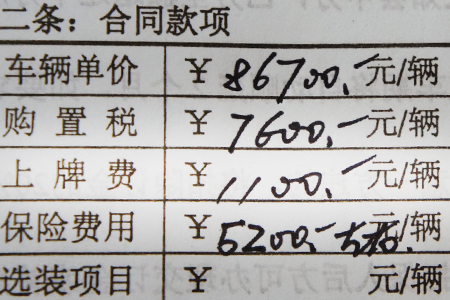 二条：合同款项
车辆单价 ￥ 86700.- 元/辆
购置税 ￥ 7600.- 元/辆
上牌费 ￥ 1100.- 元/辆
保险费用 ￥ 5200.- 元/辆
选装项目 ￥ 元/辆